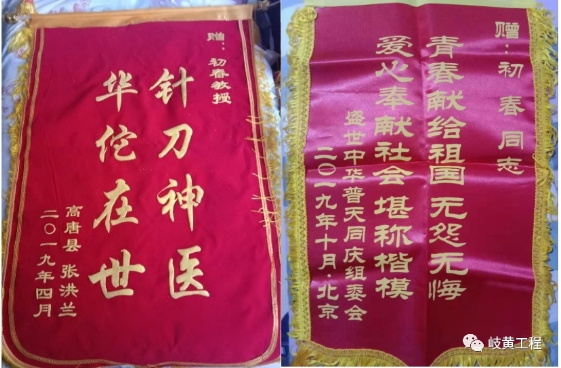 赠：初春教授
针刀神医
华佗在世
高唐县 张洪兰
二〇一九年四月
赠：初春同志
青春献给祖国 无怨无悔
爱心奉献社会 堪称楷模
盛世中华普天同庆组委会
二〇一九年十月·北京
岐黄工程